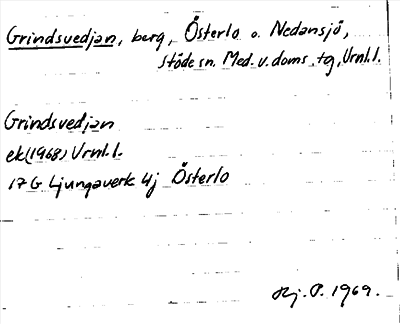 Grindsvedjan, berg, Österlo o. Nedansjö,
Stöde sn. Med. v. doms. tg, Vrnl.l.
Grindsvedjan
ek(1968) Vrnl.l.
17 G Ljungaverk 4j Österlo
Hj. P. 1969.